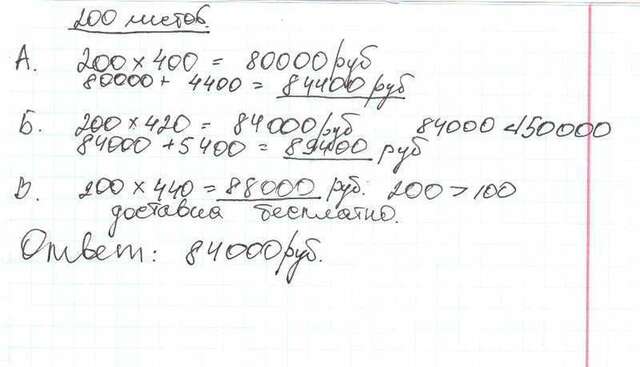 200 листов.
А. 200 × 400 = 80000 руб
80000 + 4400 = 84400 руб
Б. 200 × 420 = 84000 руб 84000 < 150000
84000 + 5400 = 89400 руб
В. 200 × 440 = 88000 руб. 200 > 100
доставка бесплатно.
Ответ: 84000 руб.